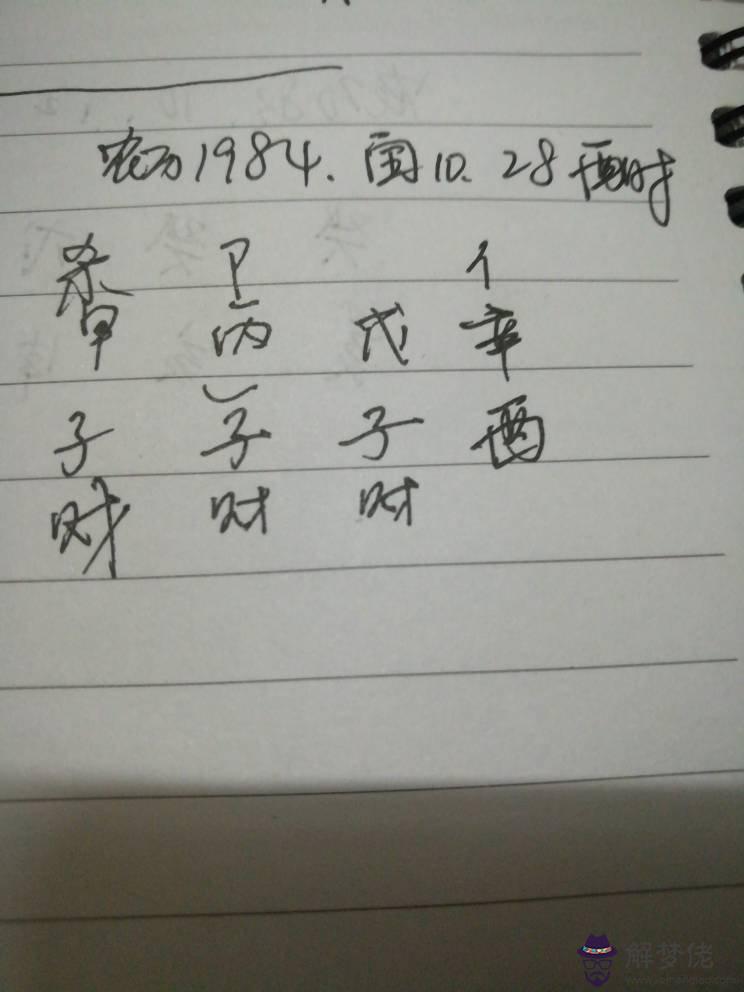 农历1984.闰10.28酉时
杀 卩 亻
甲 丙 戊 辛
子 子 子 酉
财 财 财
解梦佬